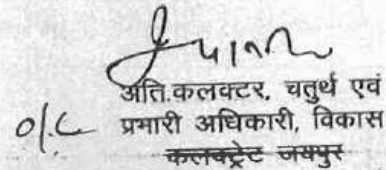 अति.कलक्टर, चतुर्थ एवं
o/c प्रभारी अधिकारी, विकास
कलक्ट्रेट जयपुर